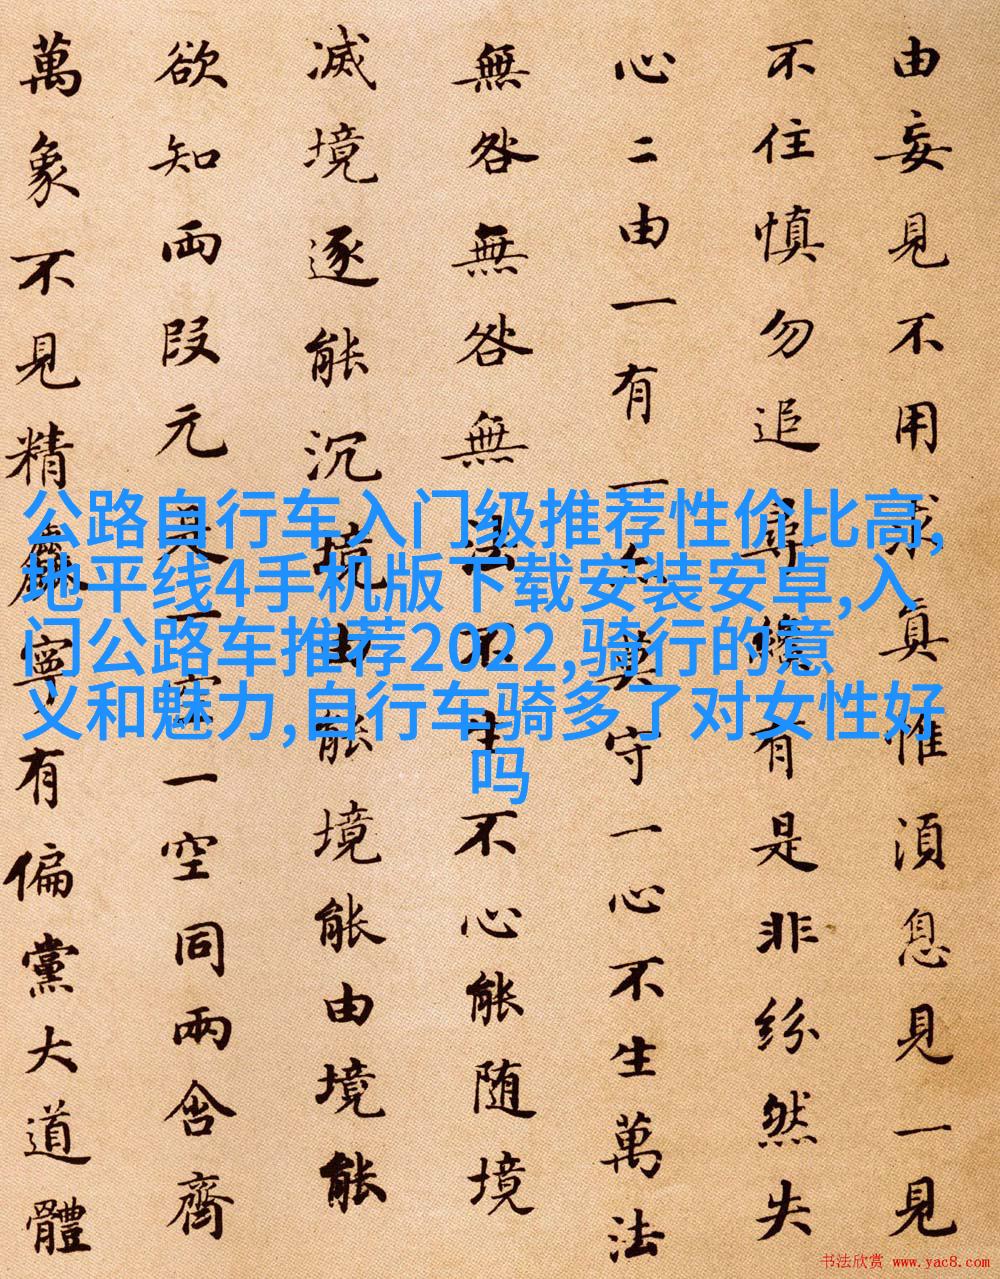 由妄見不用求真惟湏息見一見
不住慎勿追尋纔有是非紛然失
心二由一有一亦莫守一心不生萬法
無咎無咎無法不生不心能随境
滅境逐能沉境由能境能由境能
欲知両段元是一空一空同兩含齊
萬象不見精麤寧有偏黨大道體
公路自行车入门级推荐性价比高,
地平线4手机版下载安装安卓,入
门公路车推荐2022,骑行的意
义和魅力,自行车骑多了对女性好
吗
书法欣赏 www.yac8.com